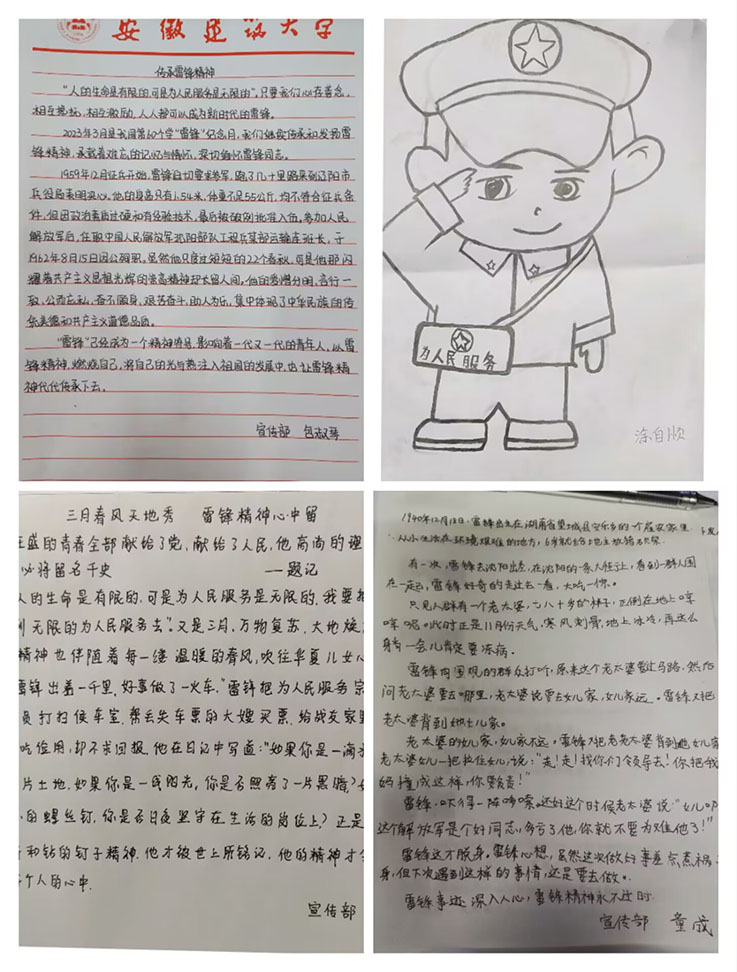 安徽建筑大学
传承雷锋精神
“人的生命是有限的,可是为人民服务是无限的”,只要我们心存善念,
相互搀扶,相互激励,人人都可以成为新时代的雷锋。
2023年3月是我国第60个学“雷锋”纪念月,我们继续传承和发扬雷
锋精神,承载着难忘的记忆与情怀,深切缅怀雷锋同志。
1959年12月征兵开始,雷锋迫切要求参军,跑了几十里路来到辽阳市
兵役局表明决心。他的身高只有1.54米,体重不足55公斤,均不符合征兵条
件,但因政治素质过硬和有经验技术,最后被破例批准入伍。参加人民
解放军后,任职中国人民解放军沈阳部队工程兵某部运输连班长,于
1962年8月15日因公殉职。虽然他只度过短短的22个春秋,可是他那闪
耀着共产主义思想光辉的崇高精神却长留人间。他的爱憎分明,言行一
致,公而忘私,奋不顾身,艰苦奋斗,助人为乐,集中体现了中华民族的传
统美德和共产主义道德品质。
“雷锋”已经成为一个精神符号,影响着一代又一代的青年人,以雷
锋精神,燃烧自己,将自己的光与热注入祖国的发展中,也让雷锋精
神代代传承下去。
宣传部 包淑琴
为人民服务
涂自
三月春风天地秀 雷锋精神心中留
旺盛的青春全部献给了党,献给了人民,他高尚的理
必将留名千史
——题记
人的生命是有限的,可是为人民服务是无限的,我要把
到无限的为人民服务去”。又是三月,万物复苏,大地焕
精神也伴随着每一缕温暖的春风,吹往华夏儿女心
雷锋出差一千里,好事做了一火车,”雷锋把为人民服务宗
员打扫候车室,帮丢失车票的大嫂买票,给战友家里
吃俭用,却不求回报。他在日记中写道:“如果你是一滴水
片土地,如果你是一线阳光,你是否照亮了一片黑暗?如
的螺丝钉,你是否日夜坚守在生活的岗位上?正是
和钻的钉子精神,他才被世上所铭记,他的精神才会
个人的心中.
宣传部
1940年12月18日,雷锋出生在湖南省望城县安乐乡的一个贫农家里,
从小生活在环境艰难的地方,6岁就给地主放猪
有一次,雷锋去沈阳出差,在沈阳的一条大街上,看到一群人围
在一起,雷锋好奇的走过去一看,大吃一惊。
只见人群有一个老太婆,七八十岁的样子,正倒在地上哼
哼呢。此时正是11月份天气,寒风刺骨,地上冰冷,再这么
身有一会儿肯定要冻病。
雷锋向围观的群众打听,原来这个老太婆要过马路,然后
问老太婆要去哪里,老太婆说要去女儿家,女儿家远。雷锋又把
老太婆背到她女儿家。
老太婆的女儿家,女儿家不远。雷锋又把老老太婆背到她女儿家
老太婆女儿一把拽住女儿,说:“走!走!找你们领导去!你把我
妈撞成这样,你要负责!”
雷锋吓得一阵哆嗦。还好这个时候老太婆说:“女儿呀
这个解放军是个好同志,多亏了他,你就不要为难他了!”
雷锋这才脱身。雷锋心想,虽然这次做好事差点惹祸
身,但下次遇到这样的事情,还是要去做。
雷锋事迹深入人心,雷锋精神永不过时
宣传部 童成